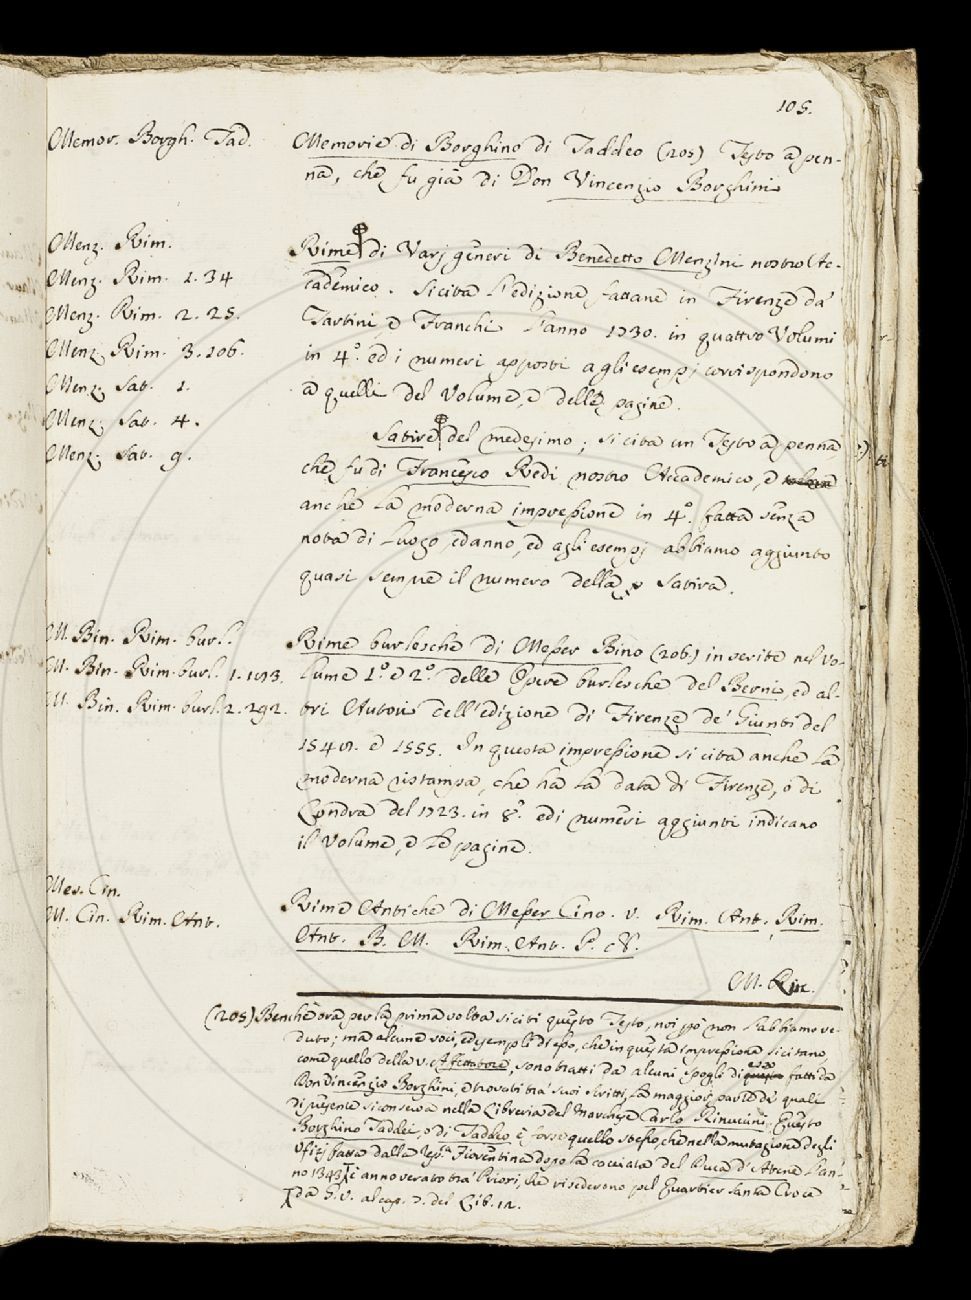 105.
Memor. Borgh. Tad.
Memorie di Borghino di Taddeo (205) Testo a pen-
na, che fu già di Don Vincenzio Borghini
Menz. Rim.
Menz. Rim. 1. 34
Menz. Rim. 2. 25.
Menz. Rim. 3. 106.
Menz. Sat. 1.
Menz. Sat. 4.
Menz. Sat. 9.
Rime di Varj generi di Benedetto Menzini nostro Ac-
cademico. Si cita l'edizione fattane in Firenze da'
Tartini e Franchi l'anno 1730. in quattro Volumi
in 4º. ed i numeri apposti agli esempj corrispondono
a quelli del Volume, e delle pagine.
Satire del medesimo; si cita un Testo a penna
che fu di Francesco Redi nostro Accademico, e
anche la moderna impressione in 4º. fatta senza
nota di Luogo, ed anno, ed agli esempj abbiamo aggiunto
quasi sempre il numero della Satira.
M. Bin. Rim. burl.
M. Bin. Rim. burl. 1. 193.
M. Bin. Rim. burl. 2. 292.
Rime burlesche di Messer Bino (206) inserite nel Vo-
lume 1º. e 2º. delle Opere burlesche del Berni, ed al-
tri Autori dell'edizione di Firenze de' Giunti del
1548. e 1555. In questa impressione si cita anche la
moderna ristampa, che ha la data di Firenze, o di
Londra del 1723. in 8º. ed i numeri aggiunti indicano
il Volume, e le pagine.
Mes. Cin.
M. Cin. Rim. Ant.
Rime Antiche di Messer Cino. v. Rim. Ant. Rim.
Ant. B. M. Rim. Ant. P. N.
M. Rin.
(205) Benchè ora per la prima volta si citi questo Testo, noi però non l'abbiamo ve-
duto; ma alcune voci, ed esempli di esso, che in questa impressione si citano,
come quello della v. Affettatore, sono tratti da alcuni spogli di esso fatti da
Don Vincenzio Borghini, e trovati tra' suoi scritti, la maggior parte de' quali
di presente si conserva nella Libreria del Marchese Carlo Rinuccini. Questo
Borghino Taddei, o di Taddeo è forse quello stesso, che nella mutazione degli
Ufizj fatta dalla Rep.ca Fiorentina dopo la cacciata del Duca d'Atene l'an-
no 1343 è annoverato tra' Priori, che risederono pel Quartier Santa Croce
da G. V. al cap. 7. del Lib. 12.